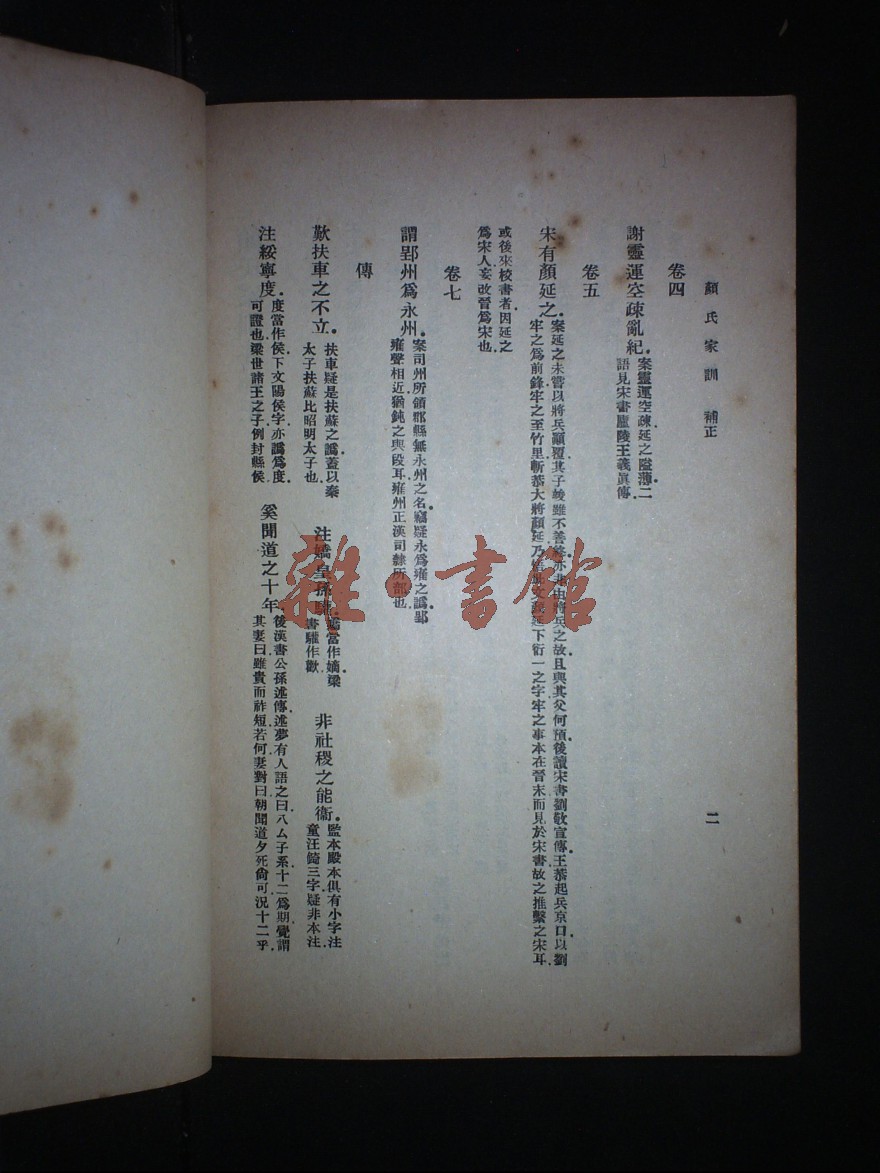 顏氏家訓　補正
二
卷四
謝靈運空疎亂紀。案靈運空疎延之隘薄二
語見宋書廬陵王義眞傳
卷五
宋有顏延之。案延之未嘗以將兵顚覆其子峻雖不善終亦非由將兵之故且與其父何預後讀宋書劉敬宣傳王恭起兵京口以劉
牢之爲前鋒牢之至竹里斬恭大將顏延乃悟此文延下衍一之字牢之事本在晉末而見於宋書故之推繫之宋耳
或後來校書者因延之
爲宋人妄改晉爲宋也
卷七
謂郢州爲永州。案司州所領郡縣無永州之名竊疑永爲雍之譌郢
雍聲相近猶鈍之與段耳雍州正漢司隸所部也
傳
歎扶車之不立。扶車疑是扶蘇之譌蓋以秦
太子扶蘇比昭明太子也
注嬌皇孫驩。嬌當作嫡梁
書驩作歡
非社稷之能衞。監本殿本俱有小字注
童汪錡三字疑非本注
注綏寧度。度當作侯下文陽侯字亦譌爲度
可證也梁世諸王之子例封縣侯
奚聞道之十年。後漢書公孫述傳述夢有人語之曰八厶子系十二爲期覺謂
其妻曰雖貴而祚短若何妻對曰朝聞道夕死尙可況十二乎
雜·書館